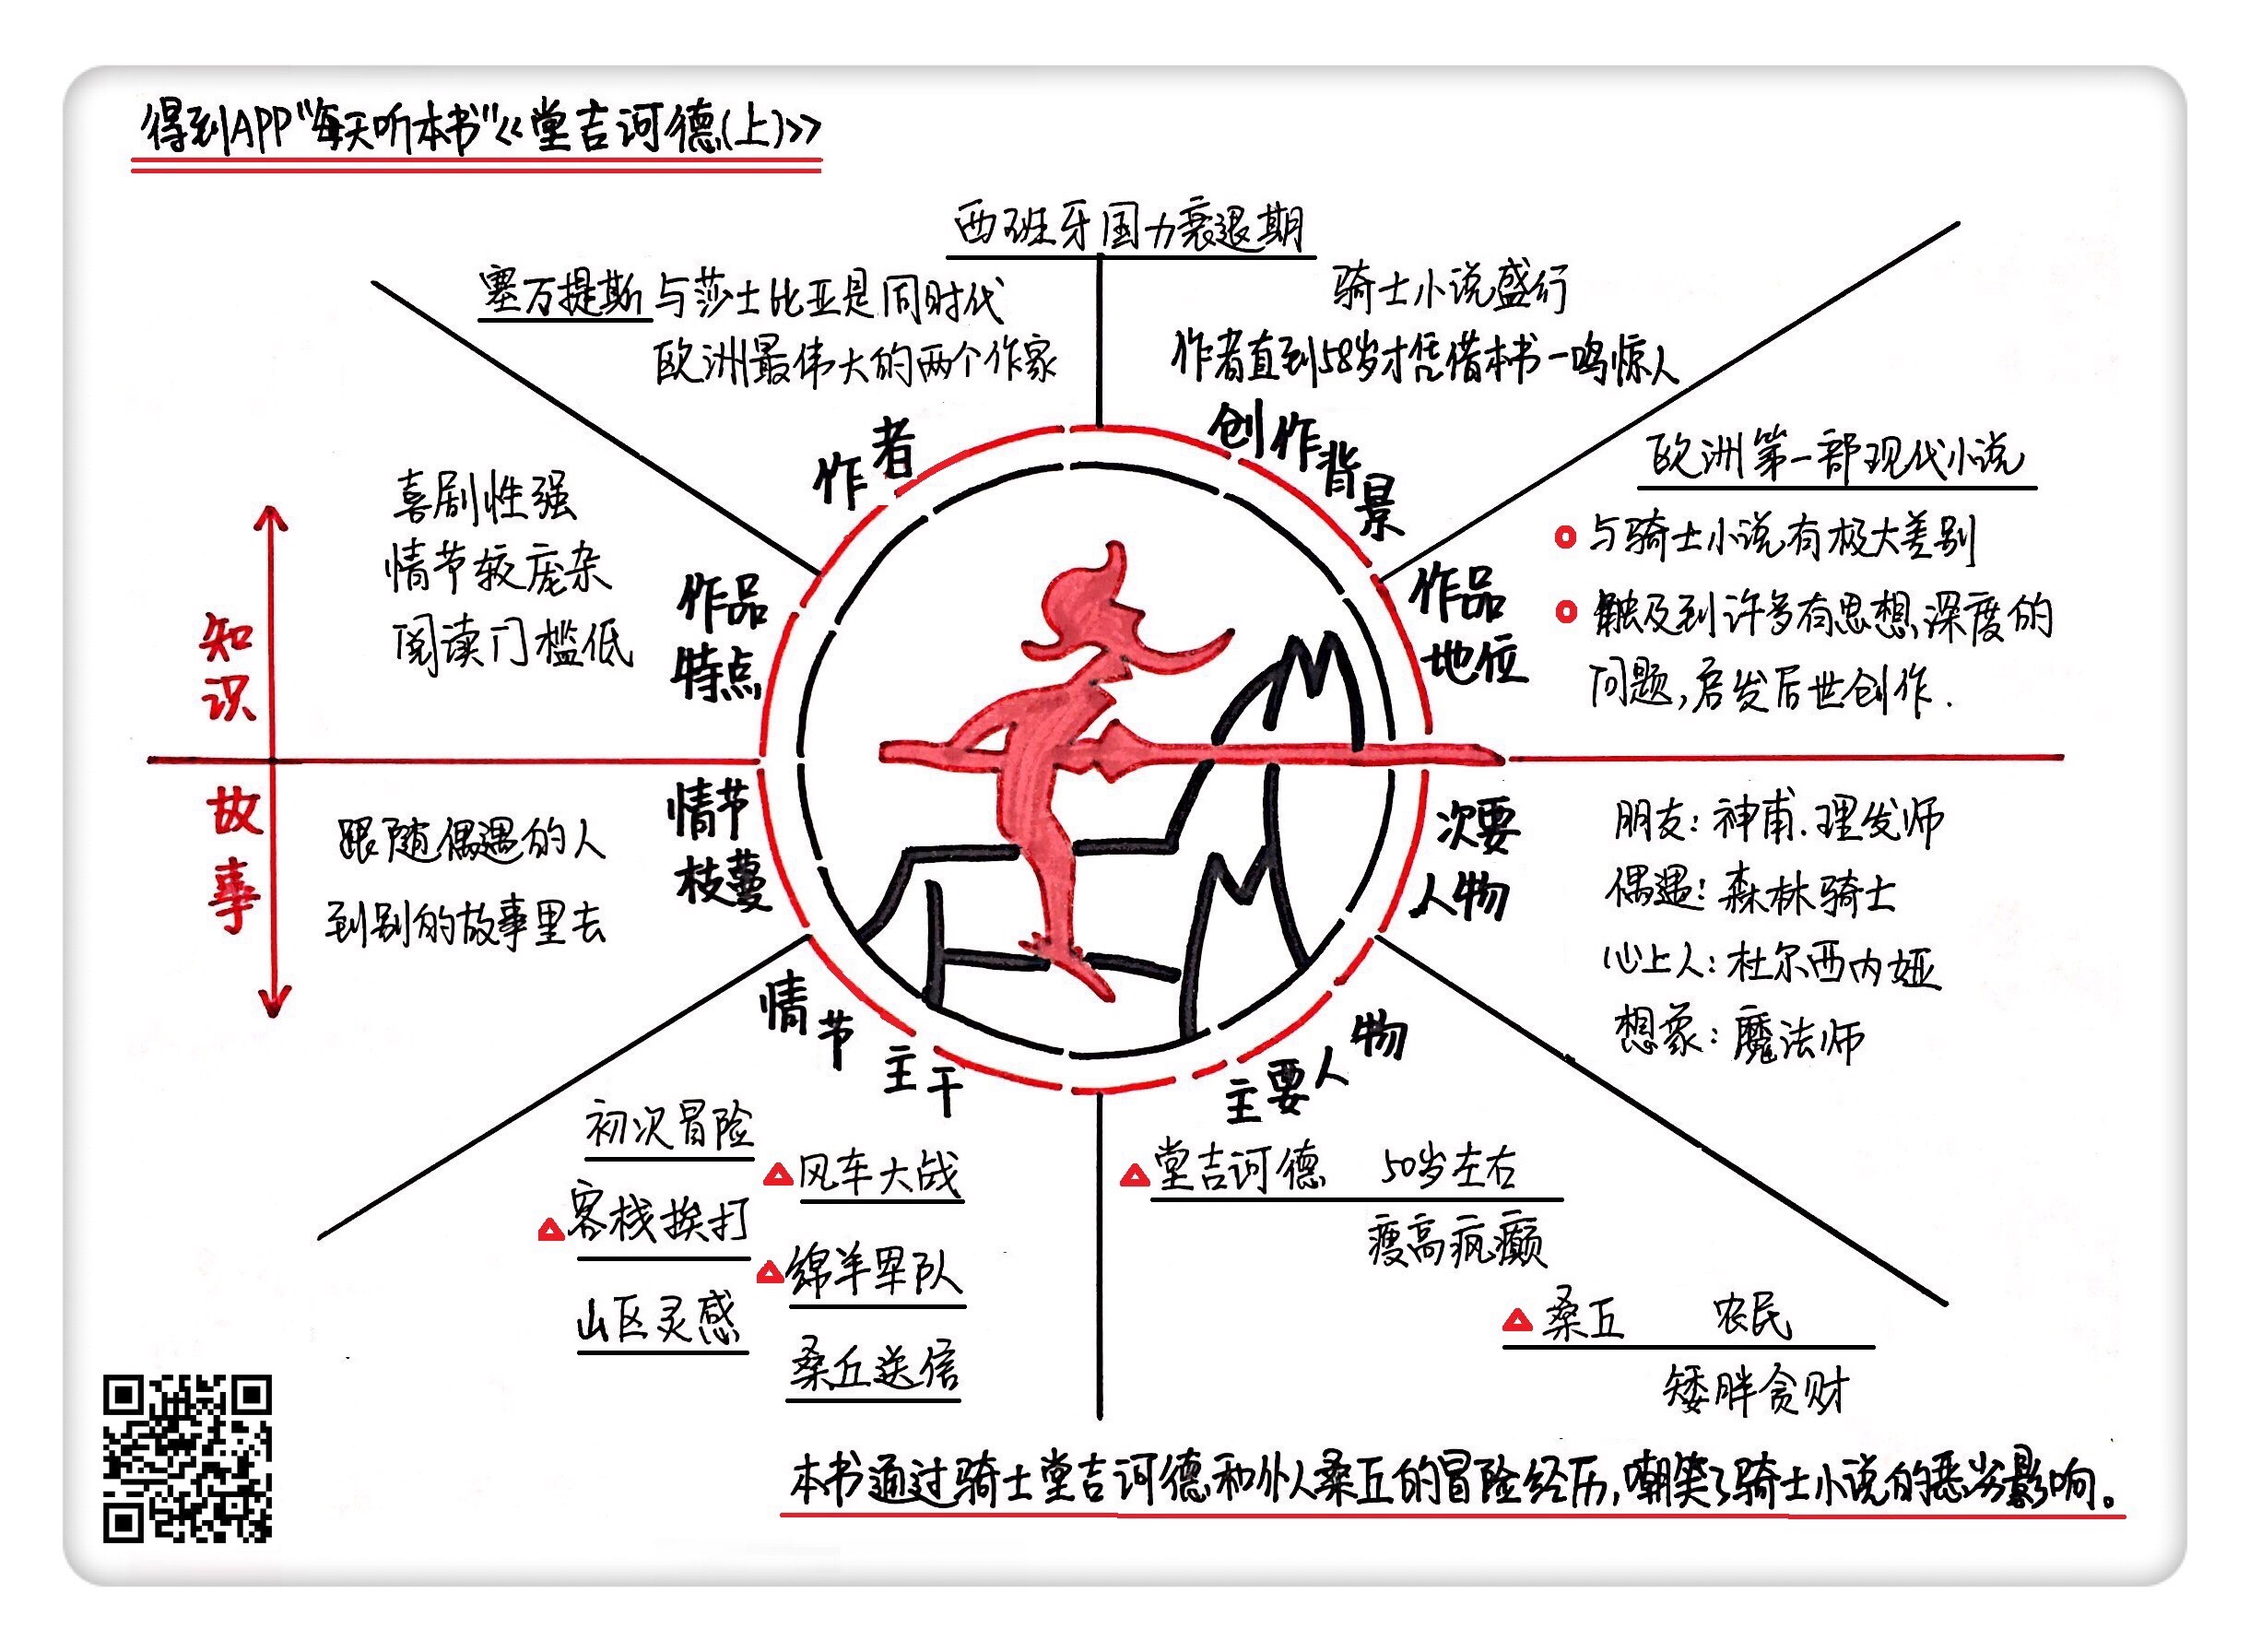 得到APP"每天听本书"《堂吉诃德(上)》
西班牙国力衰退期
塞万提斯与莎士比亚是同时代
欧洲最伟大的两个作家
作者
骑士小说盛行
作者直到58岁才凭借本书一鸣惊人
创作背景
欧洲第一部现代小说
与骑士小说有极大差别
触及到许多有思想深度的
问题,启发后世创作.
作品
地位
喜剧性强
情节较庞杂
阅读门槛低
作品
特点
知识
故事
跟随偶遇的人
到别的故事里去
情节
枝蔓
次要
人物
朋友:神甫.理发师
偶遇:森林骑士
心上人:杜尔西内娅
想象:魔法师
情节主干
初次冒险
风车大战
客栈挨打
绵羊军队
山区灵感
桑丘送信
主要人物
堂吉诃德 50岁左右
瘦高疯癫
桑丘 农民
矮胖贪财
本书通过骑士堂吉诃德和仆人桑丘的冒险经历,嘲笑了骑士小说的恶劣影响。